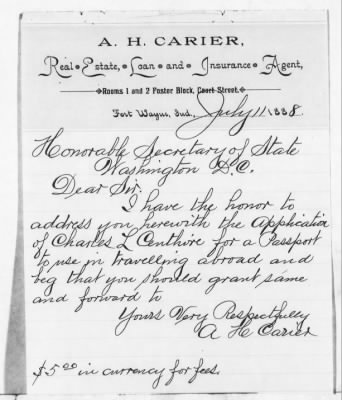 A. H. CARIER,
Real Estate, Loan and Insurance Agent,
Rooms 1 and 2 Foster Block, Court Street.
Fort Wayne, Ind., July 11 1888.
Honorable Secretary of State
Washington D.C.
Dear Sir:
I have the honor to
address you herewith the Application
of Charles L Centlivre for a Passport
to use in travelling abroad and
beg that you should grant same
and forward to
Yours Very Respectfully
A H Carier
$5.00 in currency for fees.